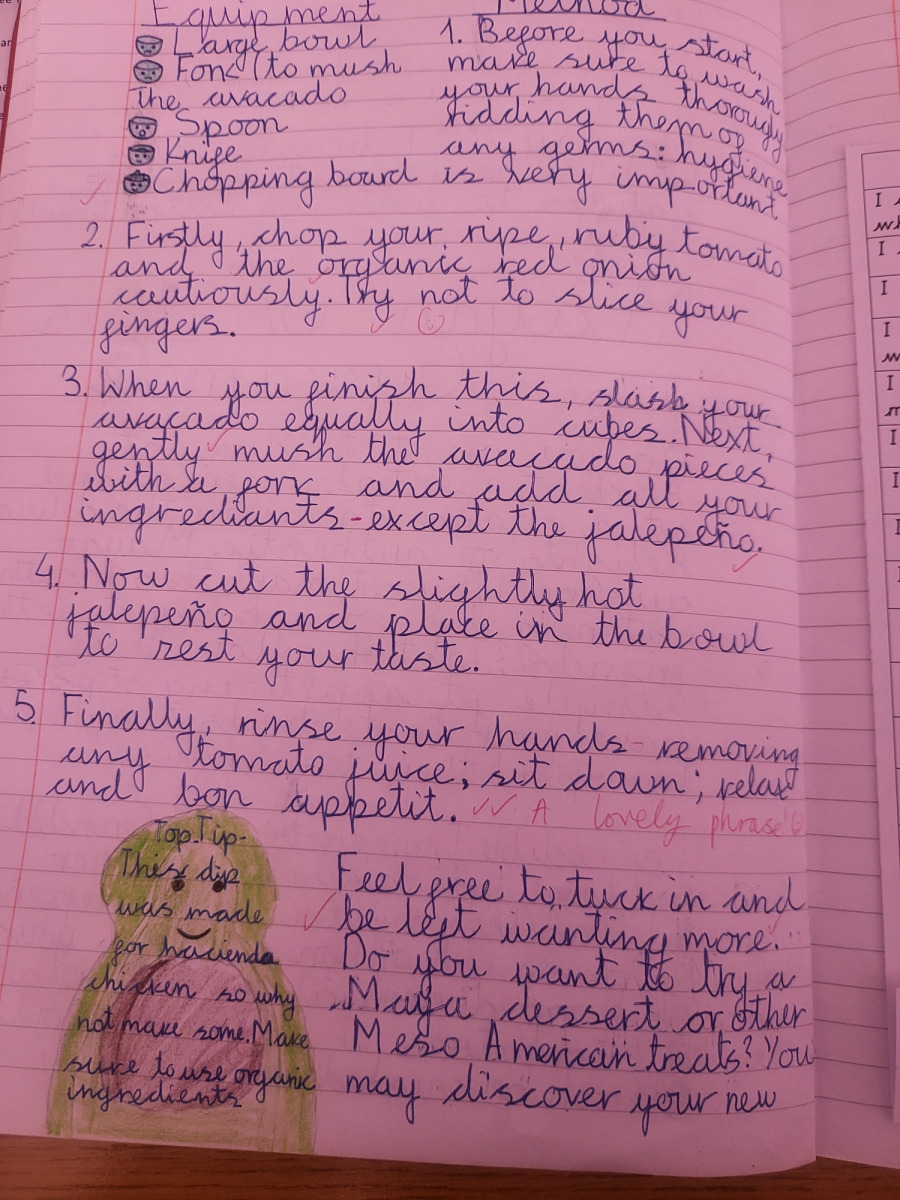 Equipment
Large bowl
Fork (to mush
the avacado
Spoon
Knife
Chopping board
Method
1. Before you start,
make sure to wash
your hands thorougly
ridding them of
any germs: hygiene
is very important
2. Firstly, chop your, ripe, ruby tomato
and the organic red onion
cautiously. Try not to slice your
fingers.
3. When you finish this, slash your
avacado equally into cubes. Next,
gently mush the avacado pieces
with a fork and add all your
ingrediants - except the jalepeño.
4. Now cut the slightly hot
jalepeño and place in the bowl
to rest your taste.
5. Finally, rinse your hands - removing
any tomato juice; sit down; relax
and bon appetit.
A lovely phrase
Top Tip-
This dip
was made
for hacienda
chicken so why
not make some. Make
sure to use organic
ingredients
Feel free to tuck in and
be left wanting more...
Do you want to try a
Maya dessert or other
Meso American treats? You
may discover your new